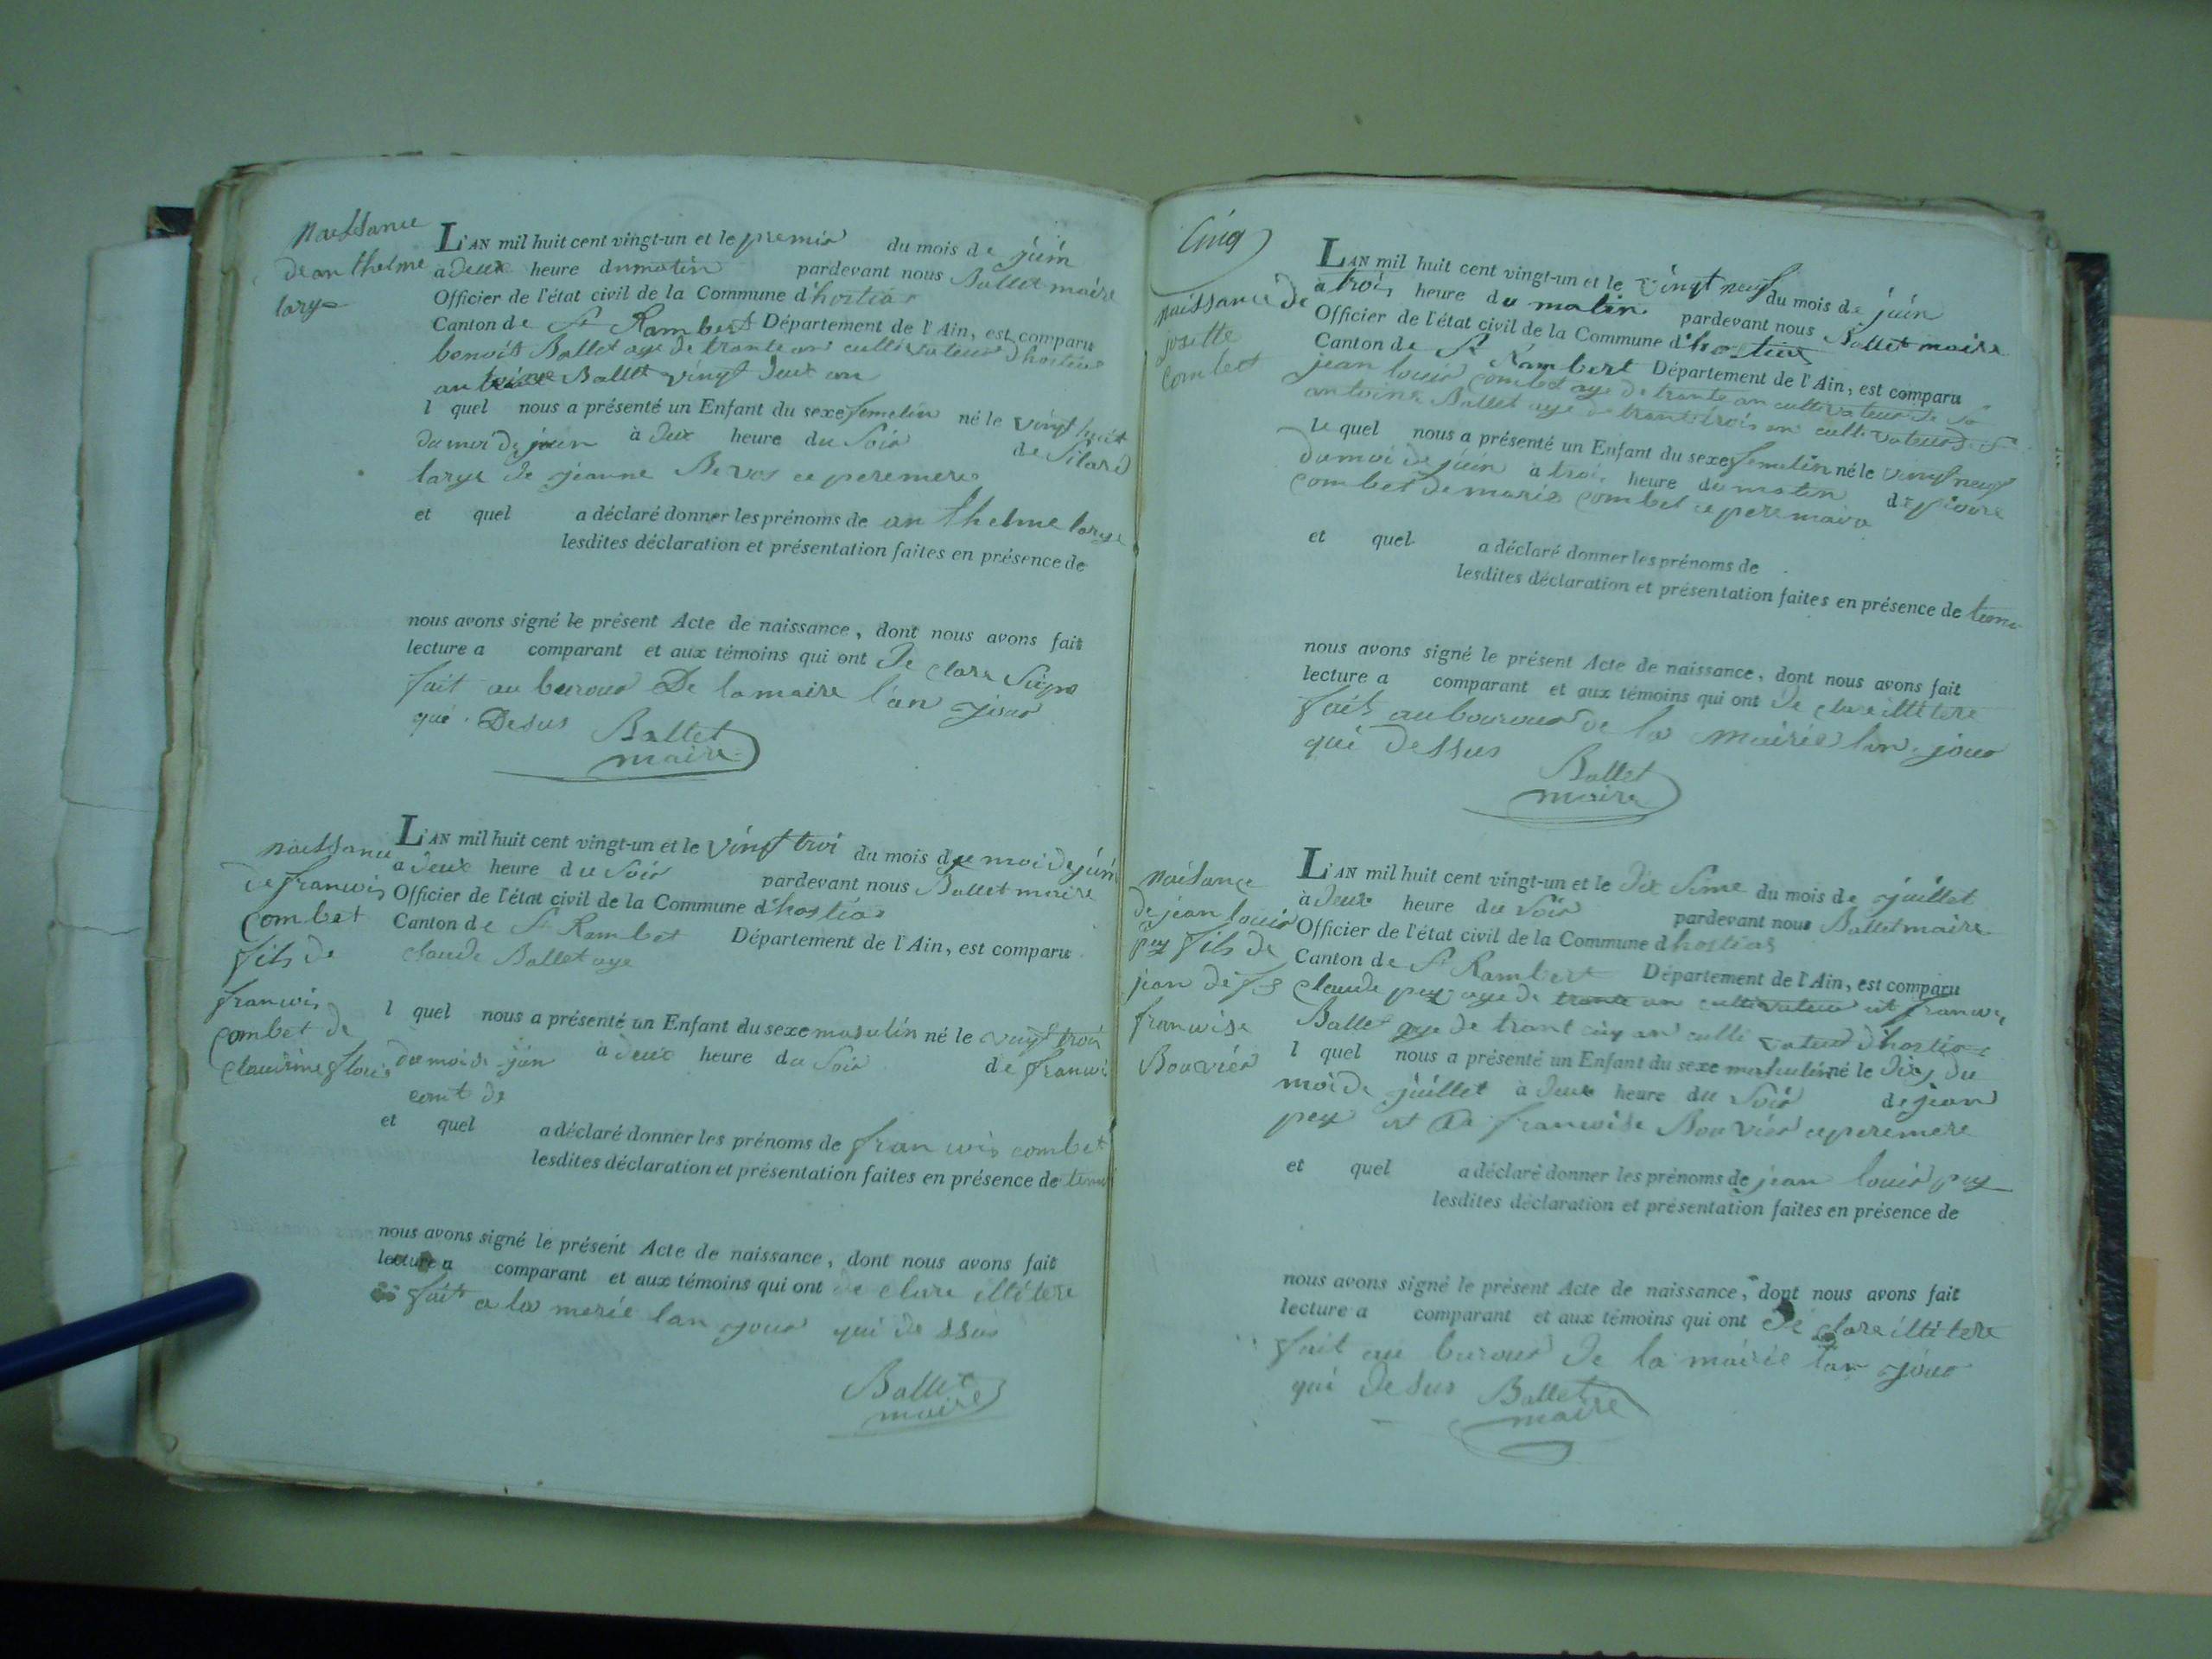 naissance
de anthelme
large
L'AN mil huit cent vingt-un et le premier du mois de juin
a deux heure du matin pardevant nous Ballet maire
Officier de l'état civil de la Commune d'hostias
Canton de St Rambert Département de l'Ain, est comparu
benoit Ballet age de trante an cultivateur d'hostias
antoine Ballet vingt deux an
l quel nous a présenté un Enfant du sexe femelin né le vingt huit
du moi de juin à deux heure du soir de
large de jeanne ce pere mere
et quel a déclaré donner les prénoms de anthelme large
lesdites déclaration et présentation faites en présence de
nous avons signé le présent Acte de naissance, dont nous avons fait
lecture a comparant et aux témoins qui ont de clare
fait au burour De la maire l'an jour
que Desus Ballet
maire
naissance
de franwis
Combet
fils de
franwis
Combet de
Claudine
L'AN mil huit cent vingt-un et le vingt troi du mois de moi de juin
a deux heure du soir pardevant nous Ballet maire
Officier de l'état civil de la Commune d'hostias
Canton de St Rambet Département de l'Ain, est comparu
claude Ballet age
l quel nous a présenté un Enfant du sexe masulin né le vingt trois
du mois de jun à deux heure du soir de franwi
comt de
et quel a déclaré donner les prénoms de franwis combet
lesdites déclaration et présentation faites en présence de
nous avons signé le présent Acte de naissance, dont nous avons fait
lecture a comparant et aux témoins qui ont de clare illitere
fait a la merie lan jour qui de ssus
Ballet
maire
Cinq
naissance de
josette
Combet
L'AN mil huit cent vingt-un et le vingt neuf du mois de juin
a trois heure du matin pardevant nous Ballet maire
Officier de l'état civil de la Commune d'hostias
Canton de St Rambert Département de l'Ain, est comparu
jean louis combet age de trante an cultivateur de
antoine Ballet age de trante trois an cultivateur
le quel nous a présenté un Enfant du sexe femelin né le vingt neuf
du moi de juin à trois heure du matin de
combet de marie combet ce pere
et quel a déclaré donner les prénoms de
lesdites déclaration et présentation faites en présence de
nous avons signé le présent Acte de naissance, dont nous avons fait
lecture a comparant et aux témoins qui ont de clare illitere
fait au bourour de la mairie lan jour
qui dessus Ballet
maire
naisance
de jean louis
pey fils de
jean de
franwise
Bouvier
L'AN mil huit cent vingt-un et le dix du mois de juillet
à deux heure du soir pardevant nous Ballet maire
Officier de l'état civil de la Commune d hostias
Canton de St Rambert Département de l'Ain, est comparu
claude pey age de trante an cultivateur et
Ballet age de trant cinq an cultivateur d'hostias
l quel nous a présenté un Enfant du sexe masculin né le dix du
moi de juillet à deux heure du soir de jean
pey et de franwise Bouvier ce pere mere
et quel a déclaré donner les prénoms de jean louis pey
lesdites déclaration et présentation faites en présence de
nous avons signé le présent Acte de naissance, dont nous avons fait
lecture a comparant et aux témoins qui ont de clare illitere
fait au burour de la mairie lan jour
qui desus Ballet
maire